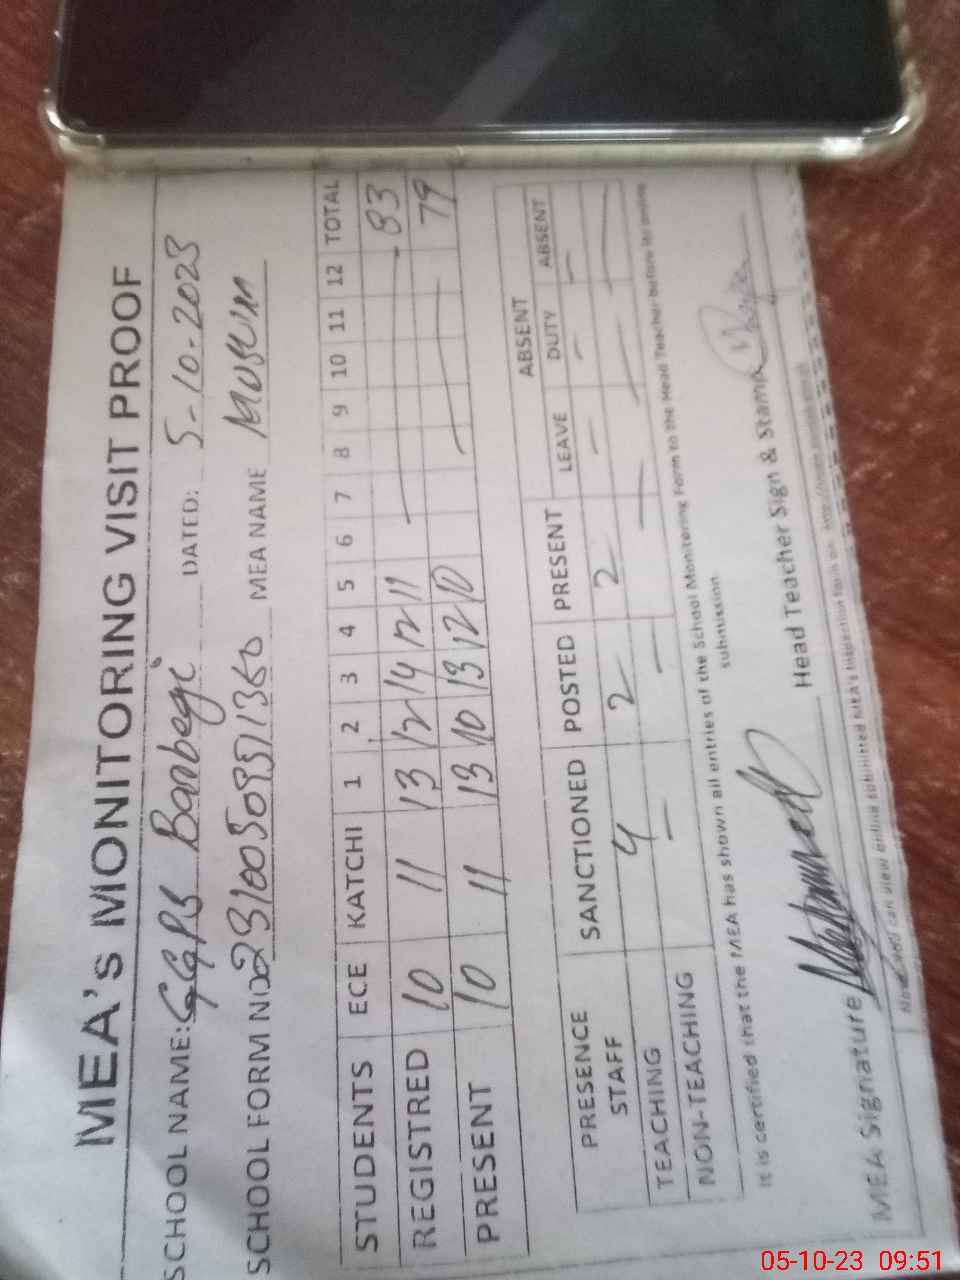 MEA's MONITORING VISIT PROOF
SCHOOL NAME: GGPS Banbegi DATED: 5-10-2023
SCHOOL FORM NO MEA NAME
STUDENTS ECE KATCHI 1 2 3 4 5 6 7 8 9 10 11 12 TOTAL
REGISTRED 10 11 13 12 14 12 11 83
PRESENT 10 11 13 10 13 12 10 79
PRESENCE STAFF SANCTIONED POSTED PRESENT ABSENT
LEAVE DUTY ABSENT
TEACHING 4 2 2 - - -
NON-TEACHING - - - - - -
It is certified that the MEA has shown all entries of the School Monitoring Form to the Head Teacher before its online
submission.
MEA Signature Head Teacher Sign & Stamp
can view online submitted MEA's inspection form on
05-10-23 09:51